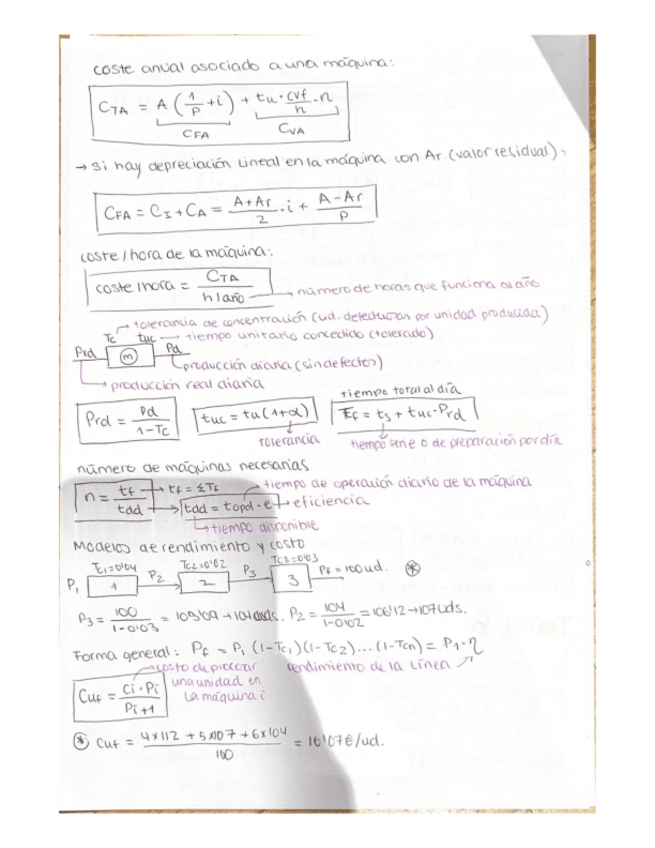 coste anual asociado a una máquina:
C_TA = A (1/P + i) + tu · cvf/h · n
C_FA C_VA
→ si hay depreciación lineal en la máquina con Ar (valor residual),
C_FA = C_I + C_A = (A+Ar)/2 · i + (A-Ar)/P
coste/hora de la máquina:
coste/hora = C_TA / h/año → número de horas que funciona al año
→ tolerancia de concentración (ud. defectuosa por unidad producida)
Tc tuc → tiempo unitario concedido (tolerado)
Prd m Pd
→ producción diaria (sin defectos)
→ producción real diaria
tiempo total al día
Prd = Pd / 1-Tc tuc = tu(1+α) Tf = ts + tuc · Prd
tolerancia tiempo serie o de preparación por día
número de máquinas necesarias
n = tf / tdd → tf = Σ Tf → tiempo de operación diario de la máquina
→ tdd = topd · e → eficiencia
→ tiempo disponible
Modelos de rendimiento y costo
Tc1=0'04 Tc2=0'02 Tc3=0'03
P1 1 P2 2 P3 3 Pf = 100 ud. *
P3 = 100 / 1-0'03 = 103'09 → 104 uds. P2 = 104 / 1-0'02 = 106'12 → 107 uds.
Forma general: Pf = P1 (1-Tc1)(1-Tc2)...(1-Tcn) = P1 · η
→ costo de procesar rendimiento de la línea
una unidad en
la máquina i
Cuf = Ci · Pi / Pi+1
* Cuf = 4x112 + 5x107 + 6x104 / 100 = 16'07€/ud.